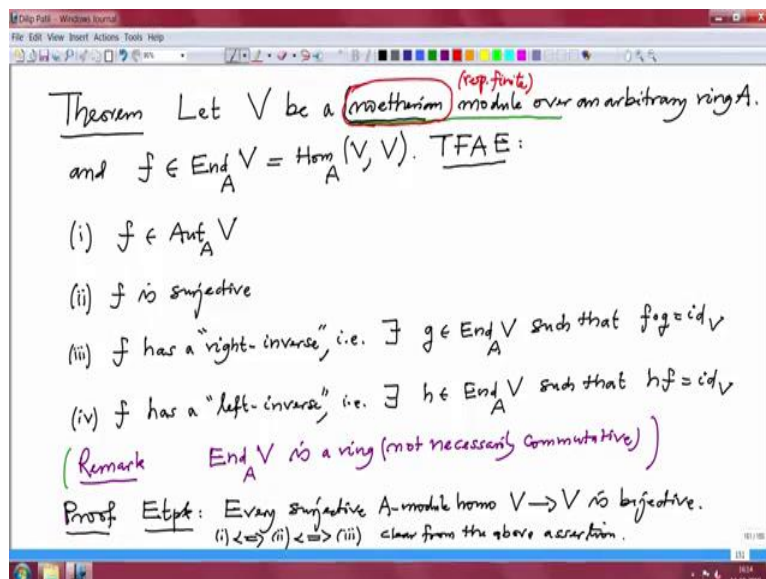 Dilip Patil - Windows Journal
File Edit View Insert Actions Tools Help
(resp. finite)
Theorem Let V be a noetherian module over an arbitrary ring A.
and f ∈ End_A V = Hom_A (V, V). TFAE:
(i) f ∈ Aut_A V
(ii) f is surjective
(iii) f has a "right-inverse", i.e. ∃ g ∈ End_A V such that f∘g = id_V
(iv) f has a "left-inverse", i.e. ∃ h ∈ End_A V such that hf = id_V
(Remark End_A V is a ring (not necessarily commutative))
Proof Etpt: Every surjective A-module homo V → V is bijective.
(i) <=> (ii) <=> (iii) clear from the above assertion.
151
16:14